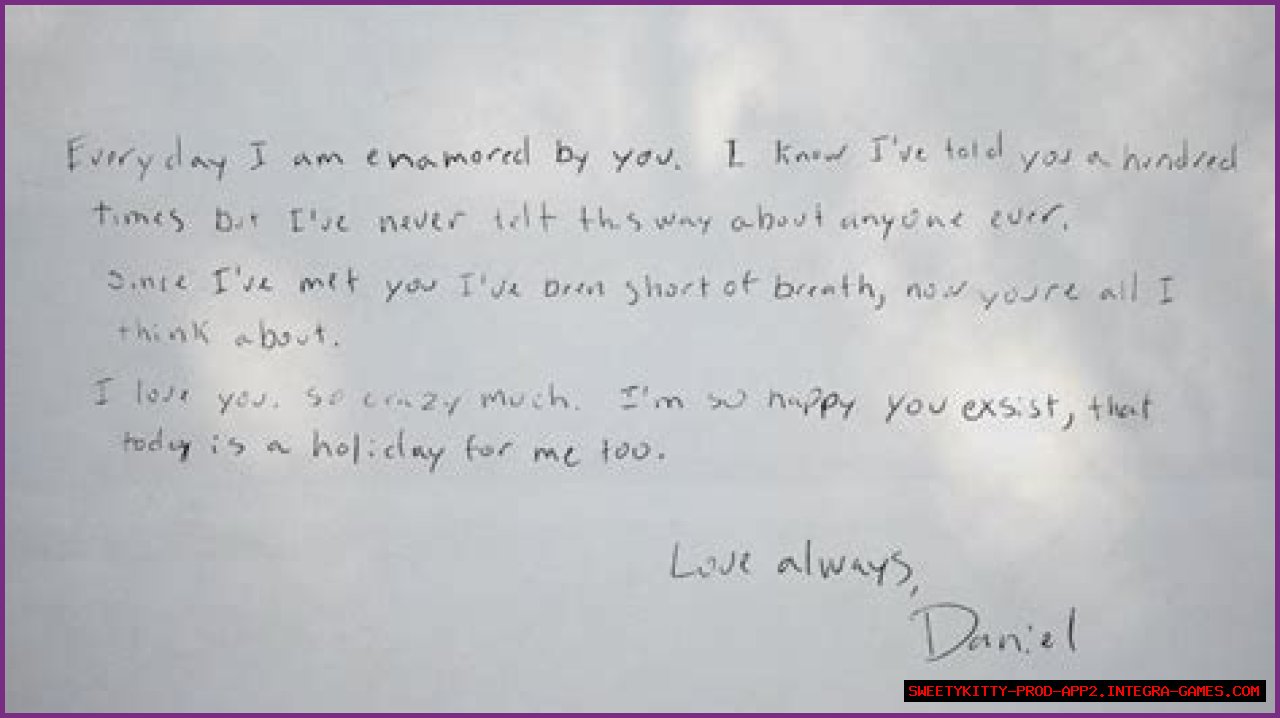 Everyday I am enamored by you. I know I've told you a hundred
times but I've never felt this way about anyone ever.
Since I've met you I've been short of breath, now youre all I
think about.
I love you. so crazy much. I'm so happy you exsist, that
today is a holiday for me too.
Love always,
Daniel
SWEETYKITTY-PROD-APP2.INTEGRA-GAMES.COM